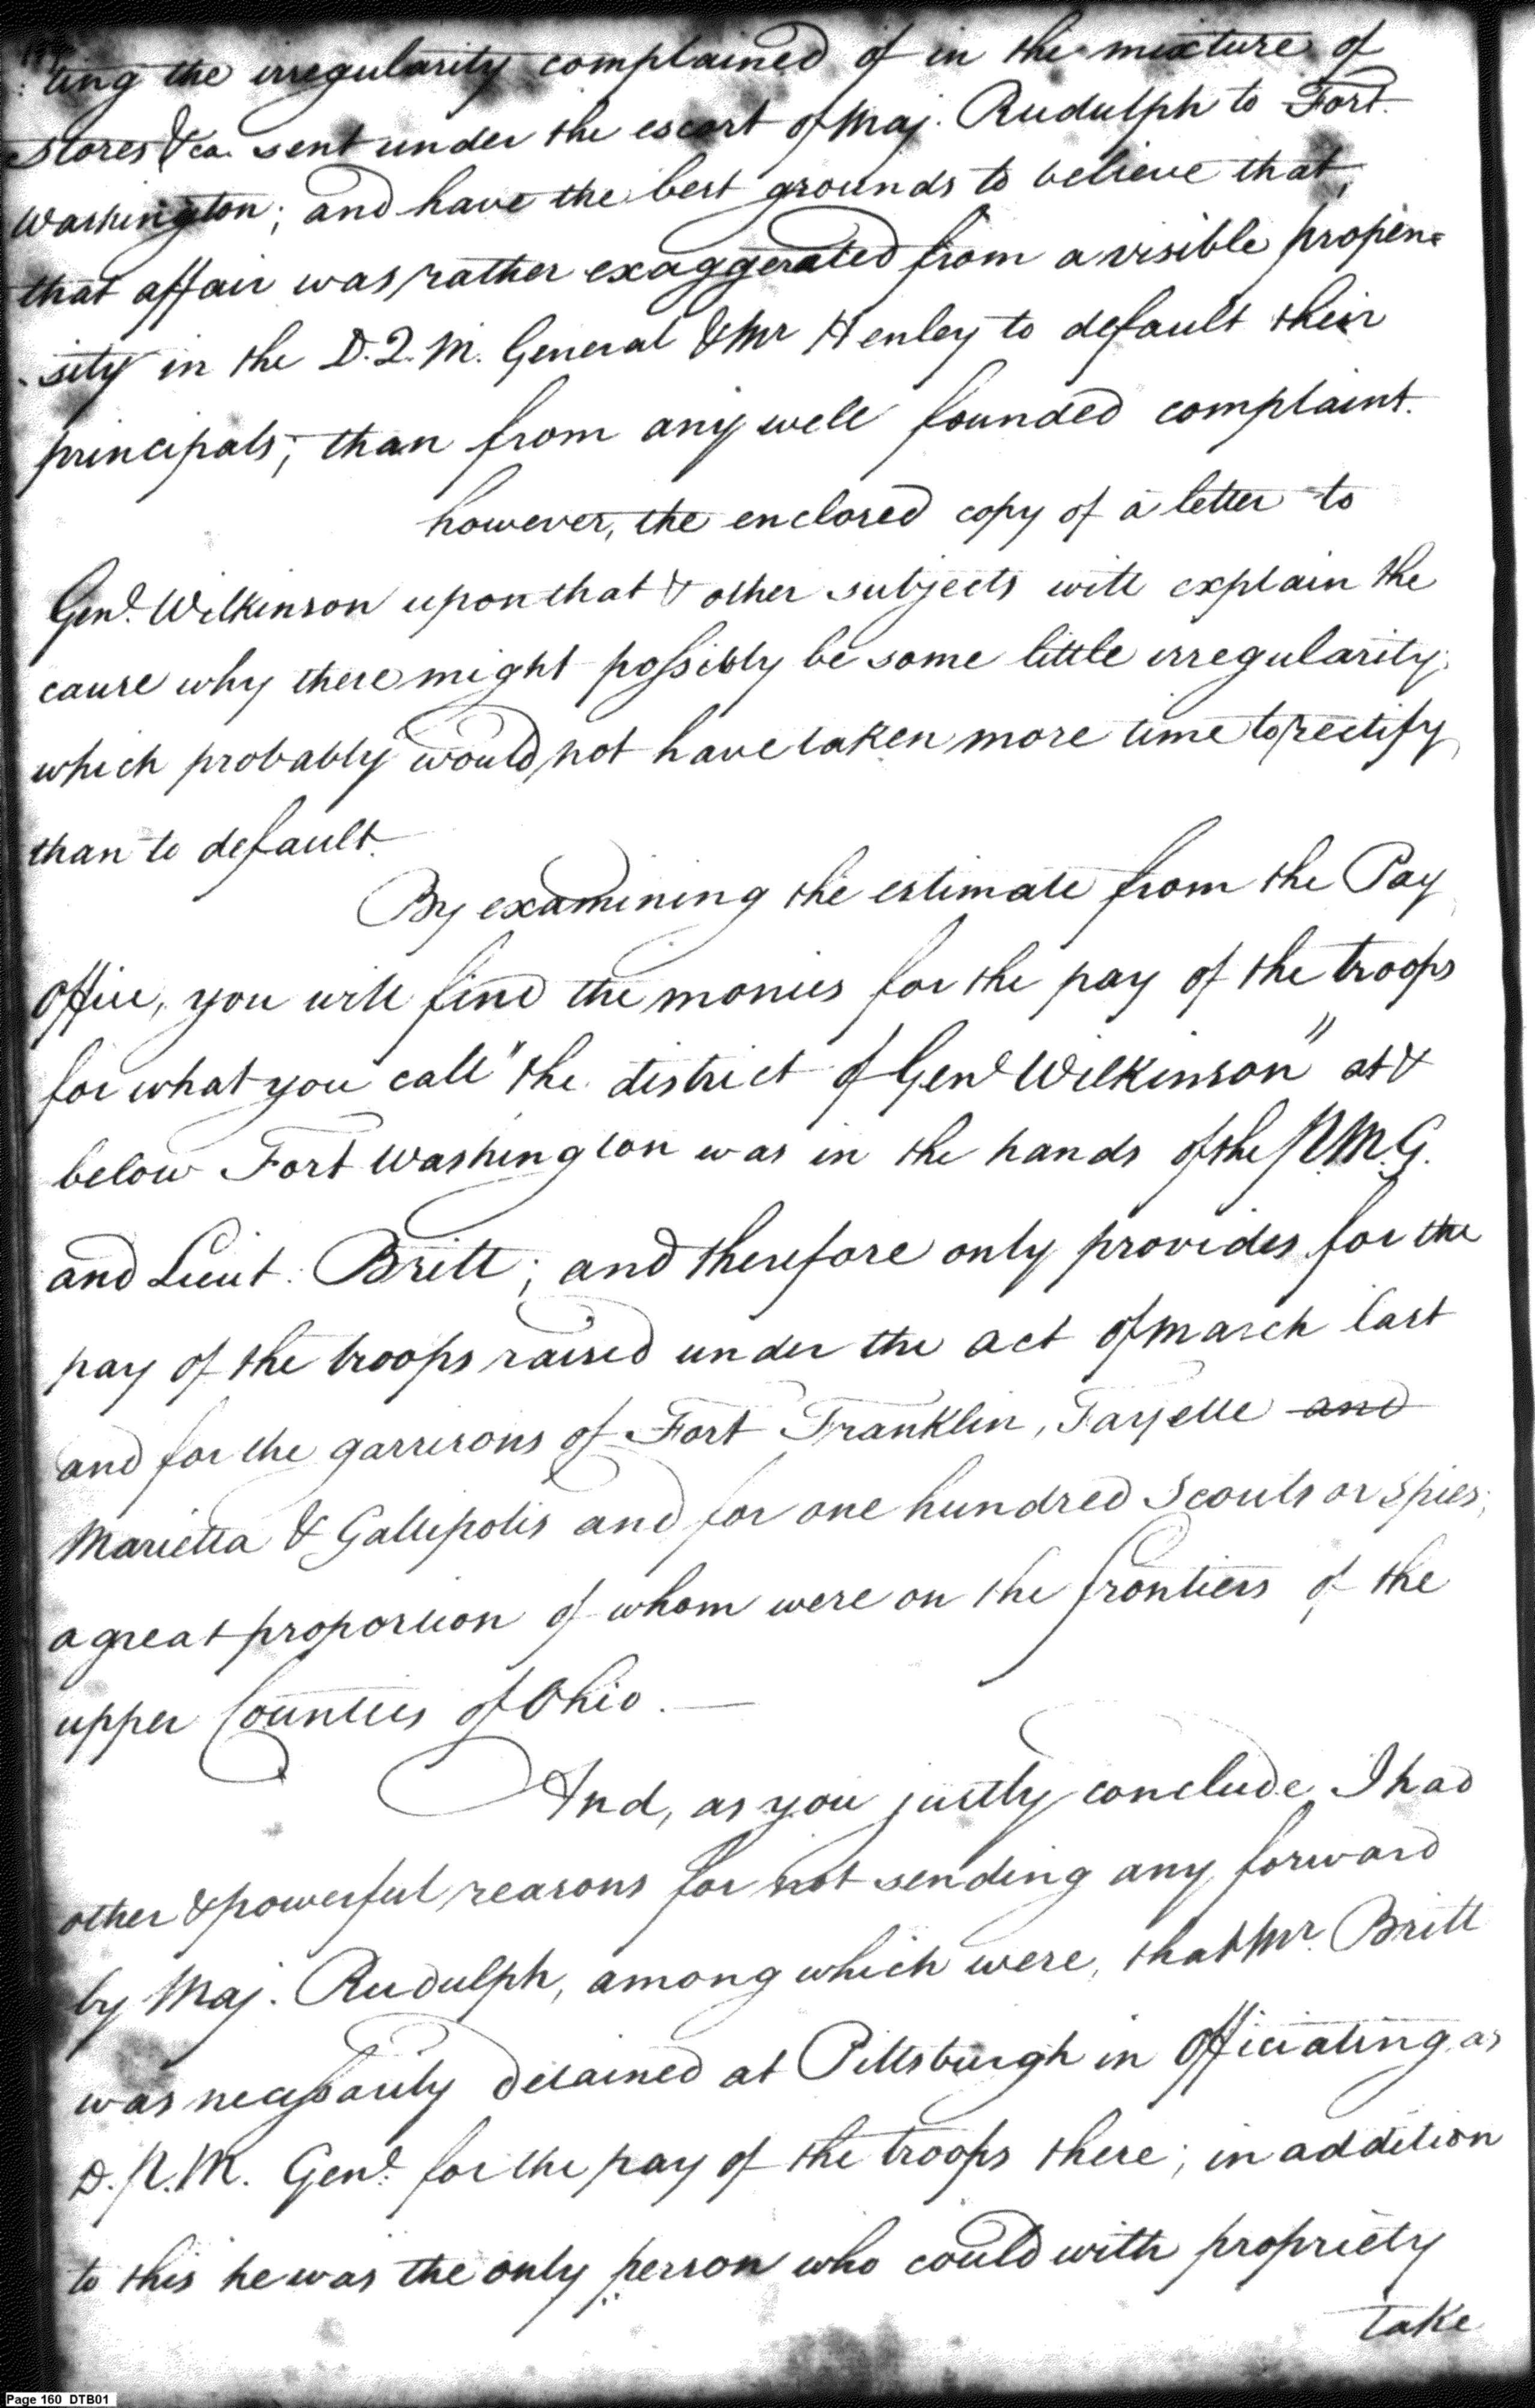 :ting the irregularity complained of in the mixture of
stores &ca. sent under the escort of Maj. Rudulph to Fort
Washington; and have the best grounds to believe that,
that affair was rather exaggerated from a visible propen=
-sity in the D. Q. M. General & Mr Henley to default their
principals; than from any well founded complaint.
however, the enclosed copy of a letter to
Genl. Wilkinson upon that & other subjects will explain the
cause why there might possibly be some little irregularity;
which probably would not have taken more time to rectify
than to default.
By examining the estimate from the Pay
Office, you will find the monies for the pay of the troops
for what you call "the district of Genl Wilkinson" at &
below Fort Washington was in the hands of the P. M. G.
and Lieut. Britt; and therefore only provides for the
pay of the troops raised under the act of March last
and for the garrisons of Fort Franklin, Fayette and
Marietta & Gallipolis and for one hundred Scouts or Spies;
a great proportion of whom were on the frontiers of the
upper Counties of Ohio. —
And, as you justly conclude, I had
other & powerful reasons for not sending any forward
by Maj. Rudulph, among which were, that Mr. Britt
was necessarily detained at Pittsburgh in Officiating as
D. P. M. Genl. for the pay of the troops there; in addition
to this he was the only person who could with propriety
take
Page 160 DTB01